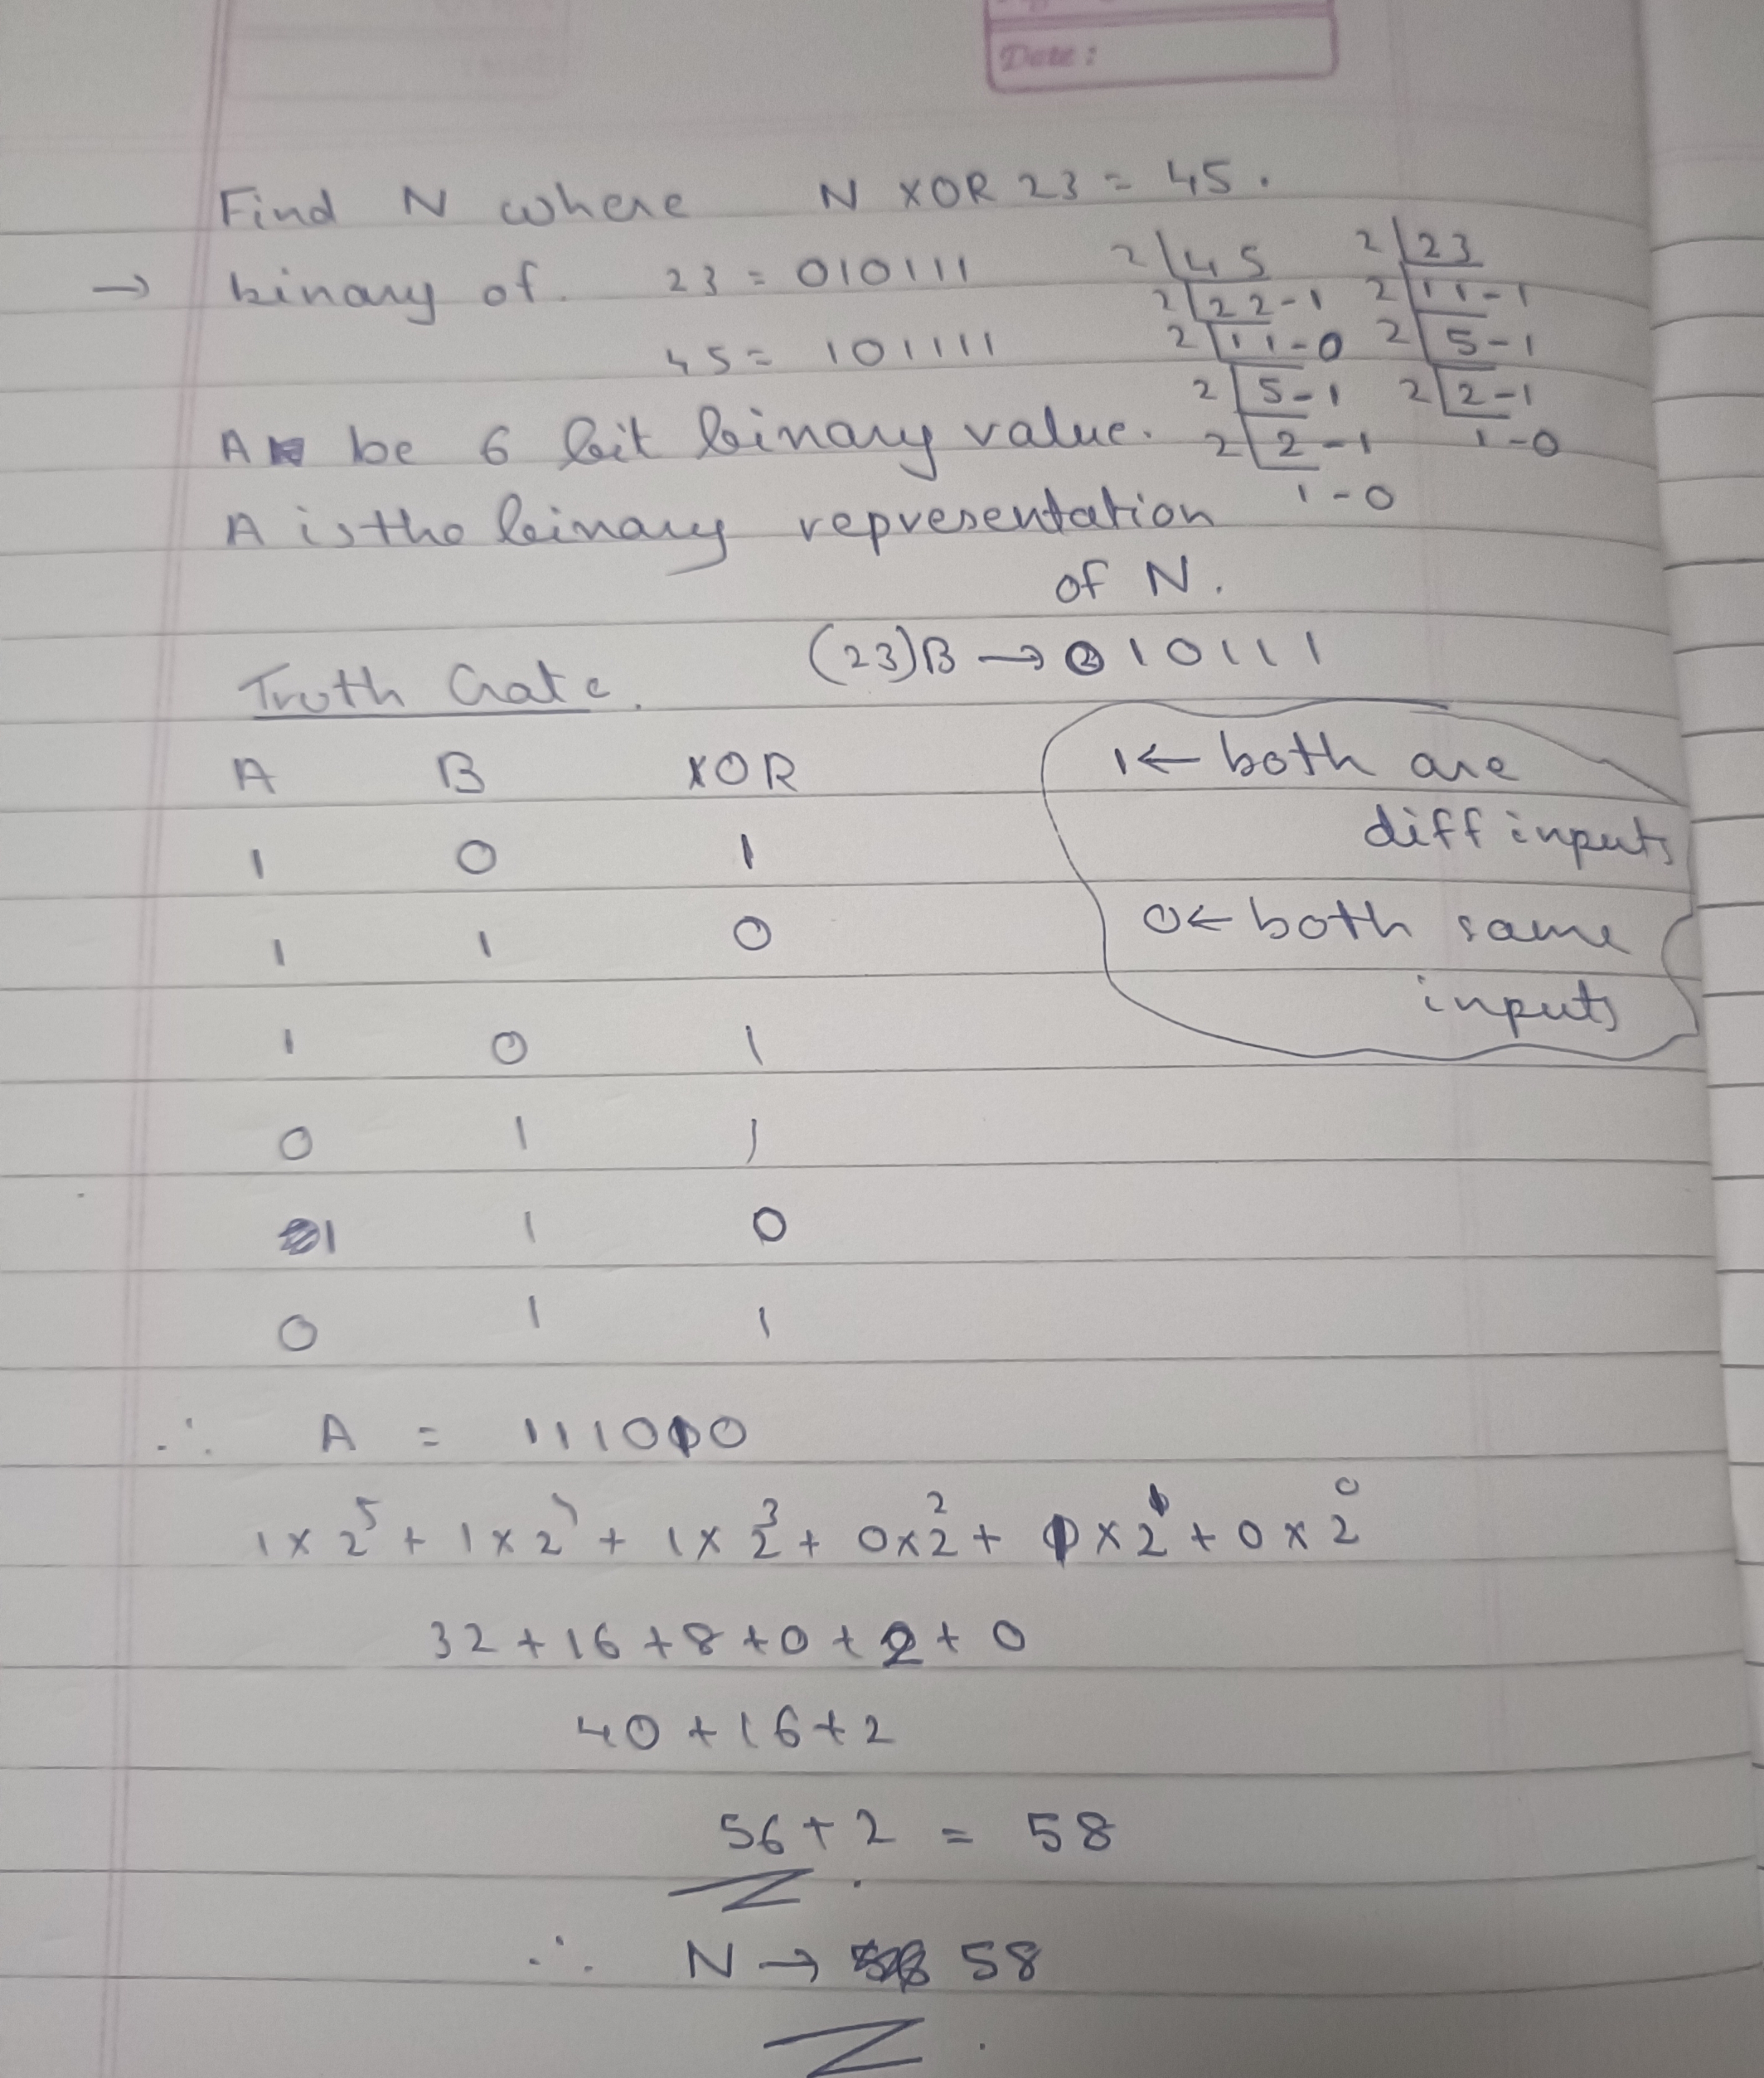 Date :
Find N where N XOR 23 = 45.
→ binary of. 23 = 010111
45 = 101111
2 45
2 22 - 1
2 11 - 0
2 5 - 1
2 2 - 1
1 - 0
2 23
2 11 - 1
2 5 - 1
2 2 - 1
1 - 0
A be 6 bit binary value.
A is the binary representation
of N.
(23)B → 010111
Truth Gate.
A B XOR
1 0 1
1 1 0
1 0 1
0 1 1
1 1 0
0 1 1
1 ← both are
diff inputs
0 ← both same
inputs
∴ A = 111010
1 × 2⁵ + 1 × 2 + 1 × 2³ + 0 × 2² + 1 × 2¹ + 0 × 2⁰
32 + 16 + 8 + 0 + 2 + 0
40 + 16 + 2
56 + 2 = 58
∴ N → 58